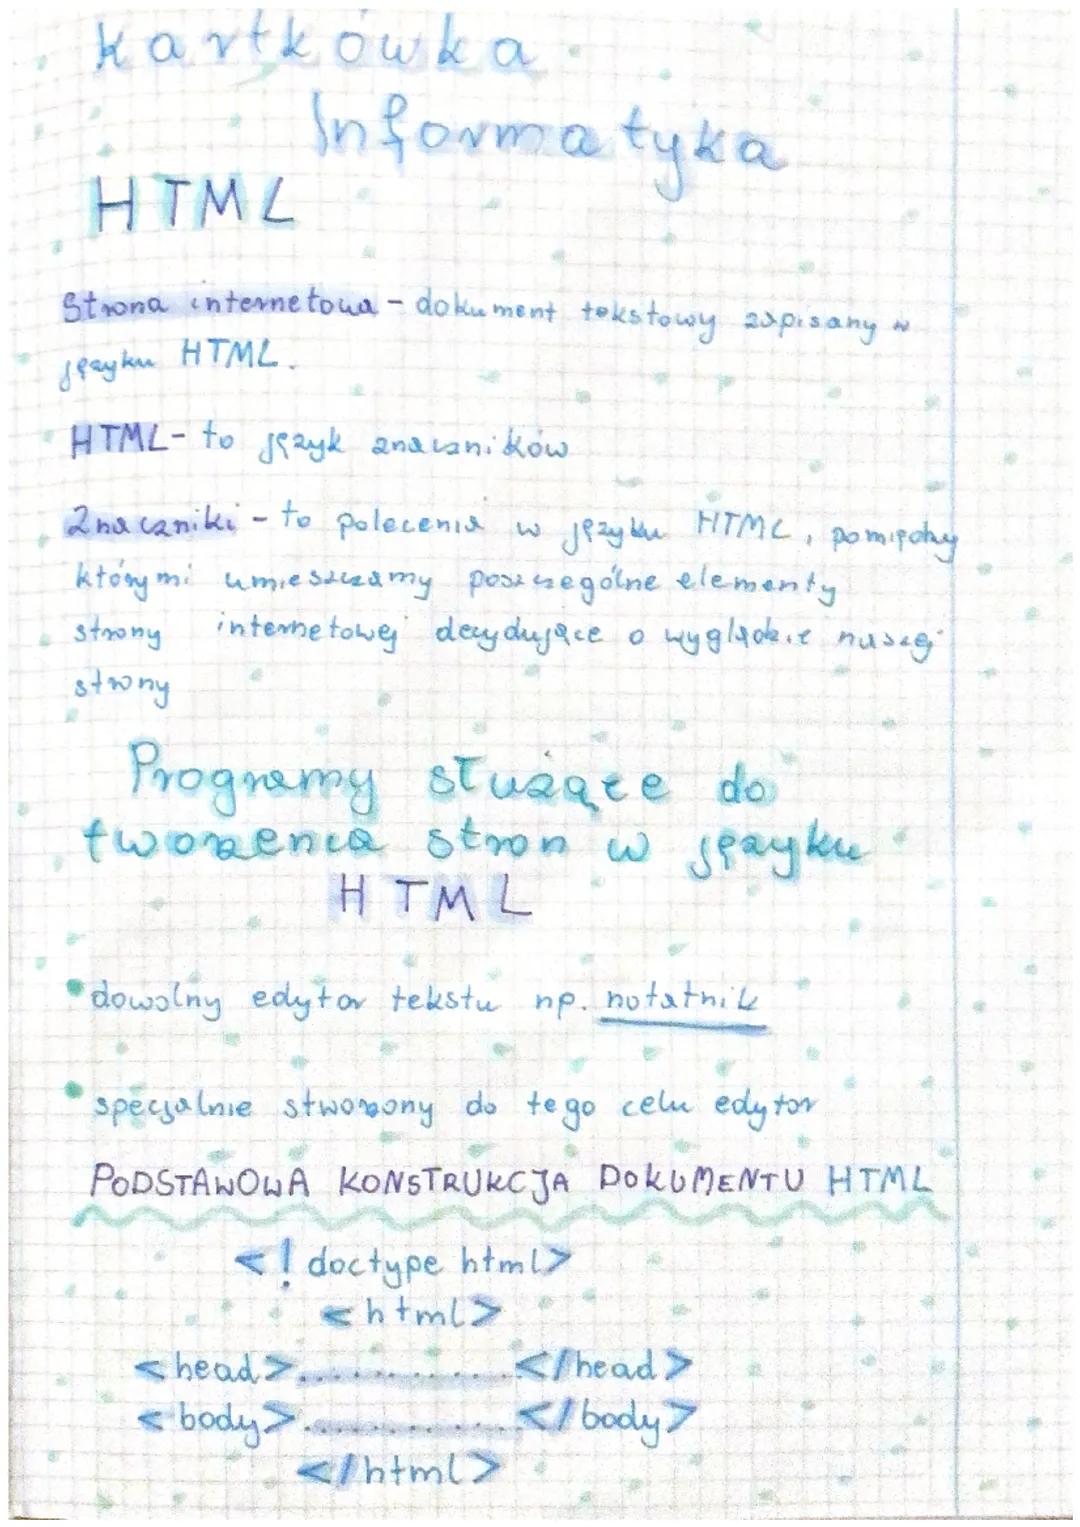 kartkówka
Informatyka
HTML
Strona internetowa - dokument tekstowy zapisany w
języku HTML.
HTML- to język znaczników
Znaczniki - to polecenia w języku HTML, pomiędzy
którymi umieszczamy poszczególne elementy
strony internetowej decydujące o wyglądzie naszej
strony
Programy służące do
tworzenia stron w języku
HTML
• dowolny edytor tekstu np. notatnik
• specjalnie stworzony do tego celu edytor
PODSTAWOWA KONSTRUKCJA DOKUMENTU HTML
<! doctype html>
<html>
<head>............</head>
<body>............</body>
</html>